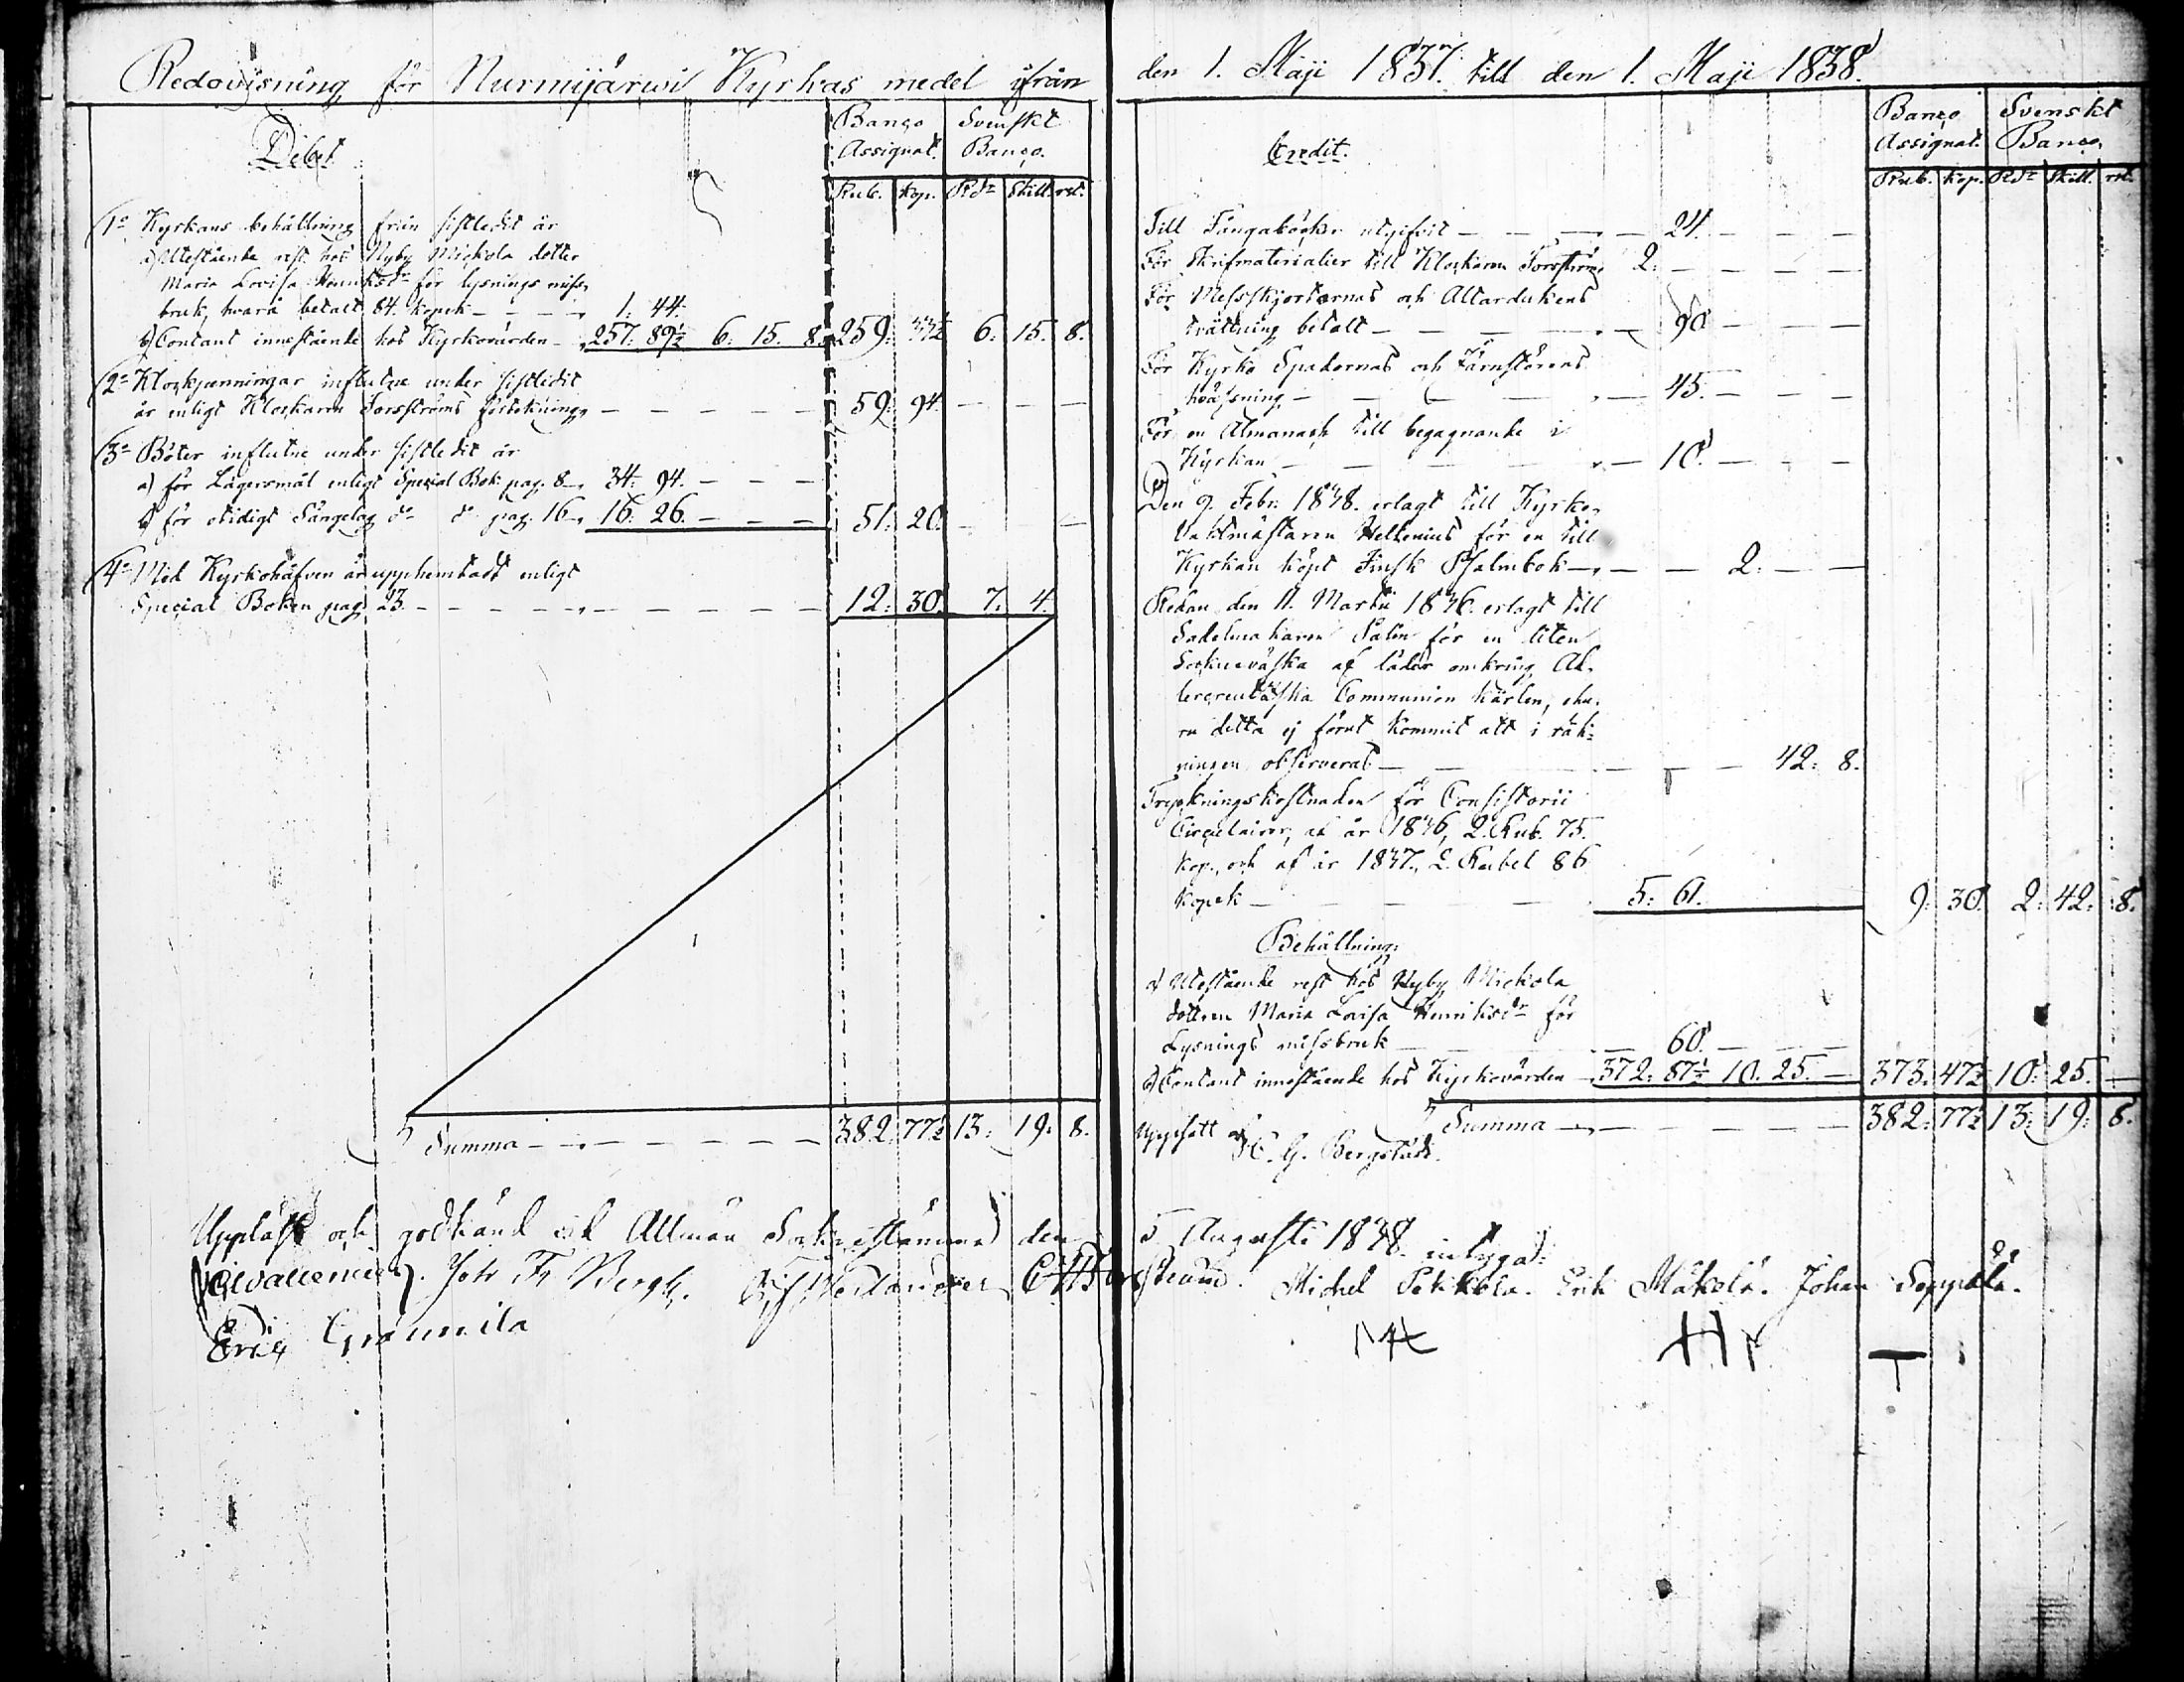 Redovisning för Nurmijärwi Kyrkas medel ifrån
Debet.
Banco Assignat. Svenskt Banco.
Rub. Kop. Rdr Skill. rst.
1o Kyrkans behållning från sistledit år
a) Utestående rest hos Nyby Mickola dotter
Maria Lovisa Henriksdr för lysnings miss
bruk, hvarå betalt 84. kopek — — — 1. 44.
b) Contant innestående hos Kyrkovärden — 257. 89½ 6. 15. 8. 259. 33½ 6. 15. 8.
2o Klockjenningar influtne under sistledit
år enligt Klockaren Forsströms förtekning — — — — 59. 94. — — —
3o Böter influtne under sistledit år
a) för Lägersmål enligt Special Bok. pag. 8 — 34. 94. — — —
b) för otidigt Sängelag do do pag. 16 — 16. 26. — — — 51. 20. — —
4o Med Kyrkohåfven är upphemtadt enligt
Special Boken pag. 23. — — — — — — — 12. 30. 7. 4.
Summa — — — — — — 382. 77½ 13. 19. 8.
den 1. Maji 1837. till den 1. Maji 1838.
Credit.
Banco Assignat. Svenskt Banco.
Rub. Kop. Rdr Skill. rst.
Till Fångaböcker utgifvit — — — — 24. — — —
För Skrifmaterialier till Klockaren Forsström 2. — — — —
För Messskjortornas och Altardukens
tvättning betalt — — — — 90 — — —
För Kyrko Spadornas och Järnstörens
hvässning — — — — 45. — — —
För en Almanach till begagnande i
Kyrkan — — — — 10. — — —
Den 9. Febr. 1838. erlagt till Kyrko
Vaktmästaren Hellenius för en till
Kyrkan köpt Finsk Psalmbok — — — 2. — —
Redan den 11. Martii 1836. erlagt till
Sadelmakaren Salin för en liten
Socknevåska af läder omkring
Communion kärlen, ehu-
ru detta ej förut kommit att i räk-
ningen observeras — — — — 42. 8.
Tryckningskostnaden för Consistorii
Circulairer, af år 1836, 2. Rub. 75.
Kop., och af år 1837., 2. Rubel 86
Kopek — — — 5. 61. 9. 30. 2. 42. 8.
Behållning:
a) Utestående rest hos Nyby Mickola
dottren Maria Lovisa Henriksdr för
Lysnings missbruk — — 60. — — —
b) Contant innestående hos Kyrkovärden — 372. 87½ 10. 25. — 373. 47½ 10. 25. —
Summa — — — — — — 382. 77½ 13. 19. 8.
Uppsatt af
C. G. Bergstadi
Uppläst och godkänd vid Allmän Sockenstämma den 5 Augusti 1838. intyga:
Joh Fr Bergh. Michel Pekkola. Erik Mäkelä. Johan Seppälä.
Eric Gråunila